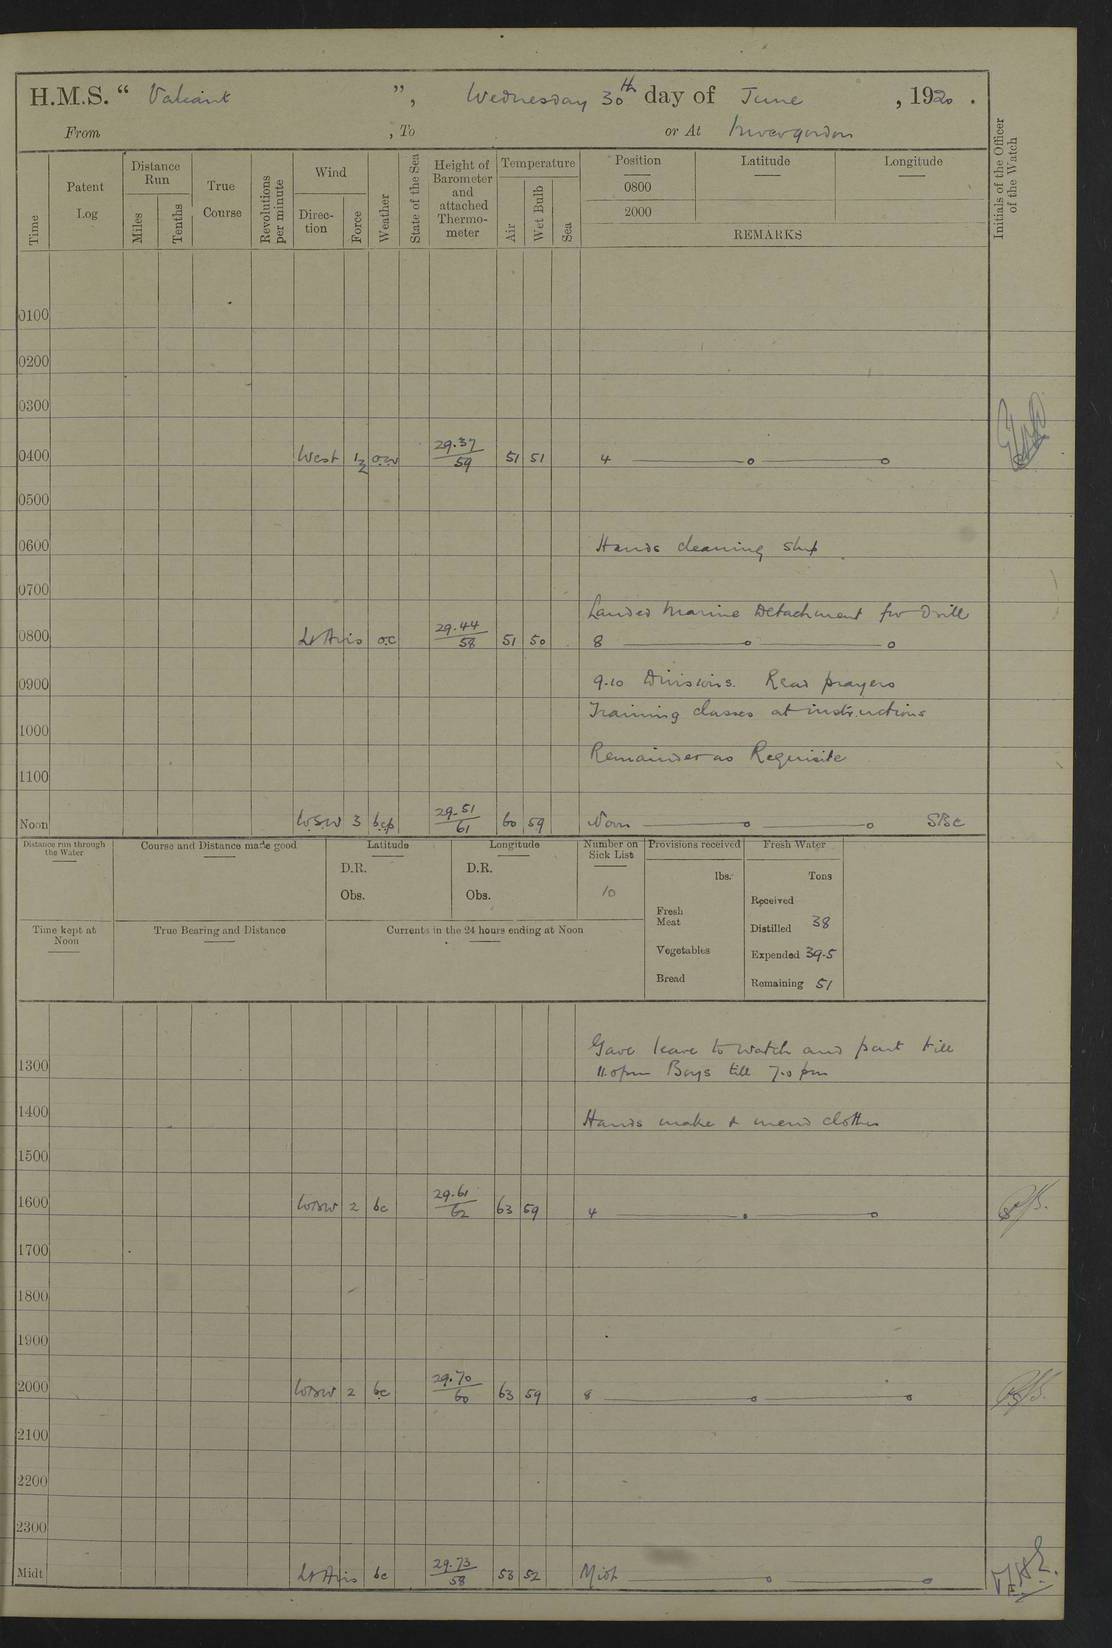 H.M.S. “ Valiant ”, Wednesday 30th day of June , 1920 .
From , To or At Invergordon
Time
Patent Log
Distance Run
Miles
Tenths
True Course
Revolutions per minute
Wind
Direction
Force
Weather
State of the Sea
Height of Barometer and attached Thermometer
Temperature
Air
Wet Bulb
Sea
Position
0800
2000
Latitude
Longitude
REMARKS
Initials of the Officer of the Watch
0100
0200
0300
0400 West 1/2 o.w 29.37/59 51 51 4
0500
0600 Hands cleaning ship
0700
Landed Marine Detachment for Drill
0800 Lt Airs o.c 29.44/58 51 50 8
0900 9.10 Divisions. Read prayers
Training classes at instructions
1000
Remainder as Requisite
1100
Noon W.S.W 3 b.c.p 29.51/61 60 59 Noon SBC
Distance run through the Water
Course and Distance made good
Latitude
D.R.
Obs.
Longitude
D.R.
Obs.
Number on Sick List
10
Provisions received
lbs.
Fresh Meat
Vegetables
Bread
Fresh Water
Tons
Received
Distilled 38
Expended 39.5
Remaining 51
Time kept at Noon
True Bearing and Distance
Currents in the 24 hours ending at Noon
Gave leave to watch and part till
1300 11.0pm Boys till 7.0 pm
1400 Hands make & mend clothes
1500
1600 WSW 2 bc 29.61/62 63 59 4
1700
1800
1900
2000 WSW 2 bc 29.70/60 63 59 8
2100
2200
2300
Midt Lt Airs bc 29.73/58 53 52 Midt